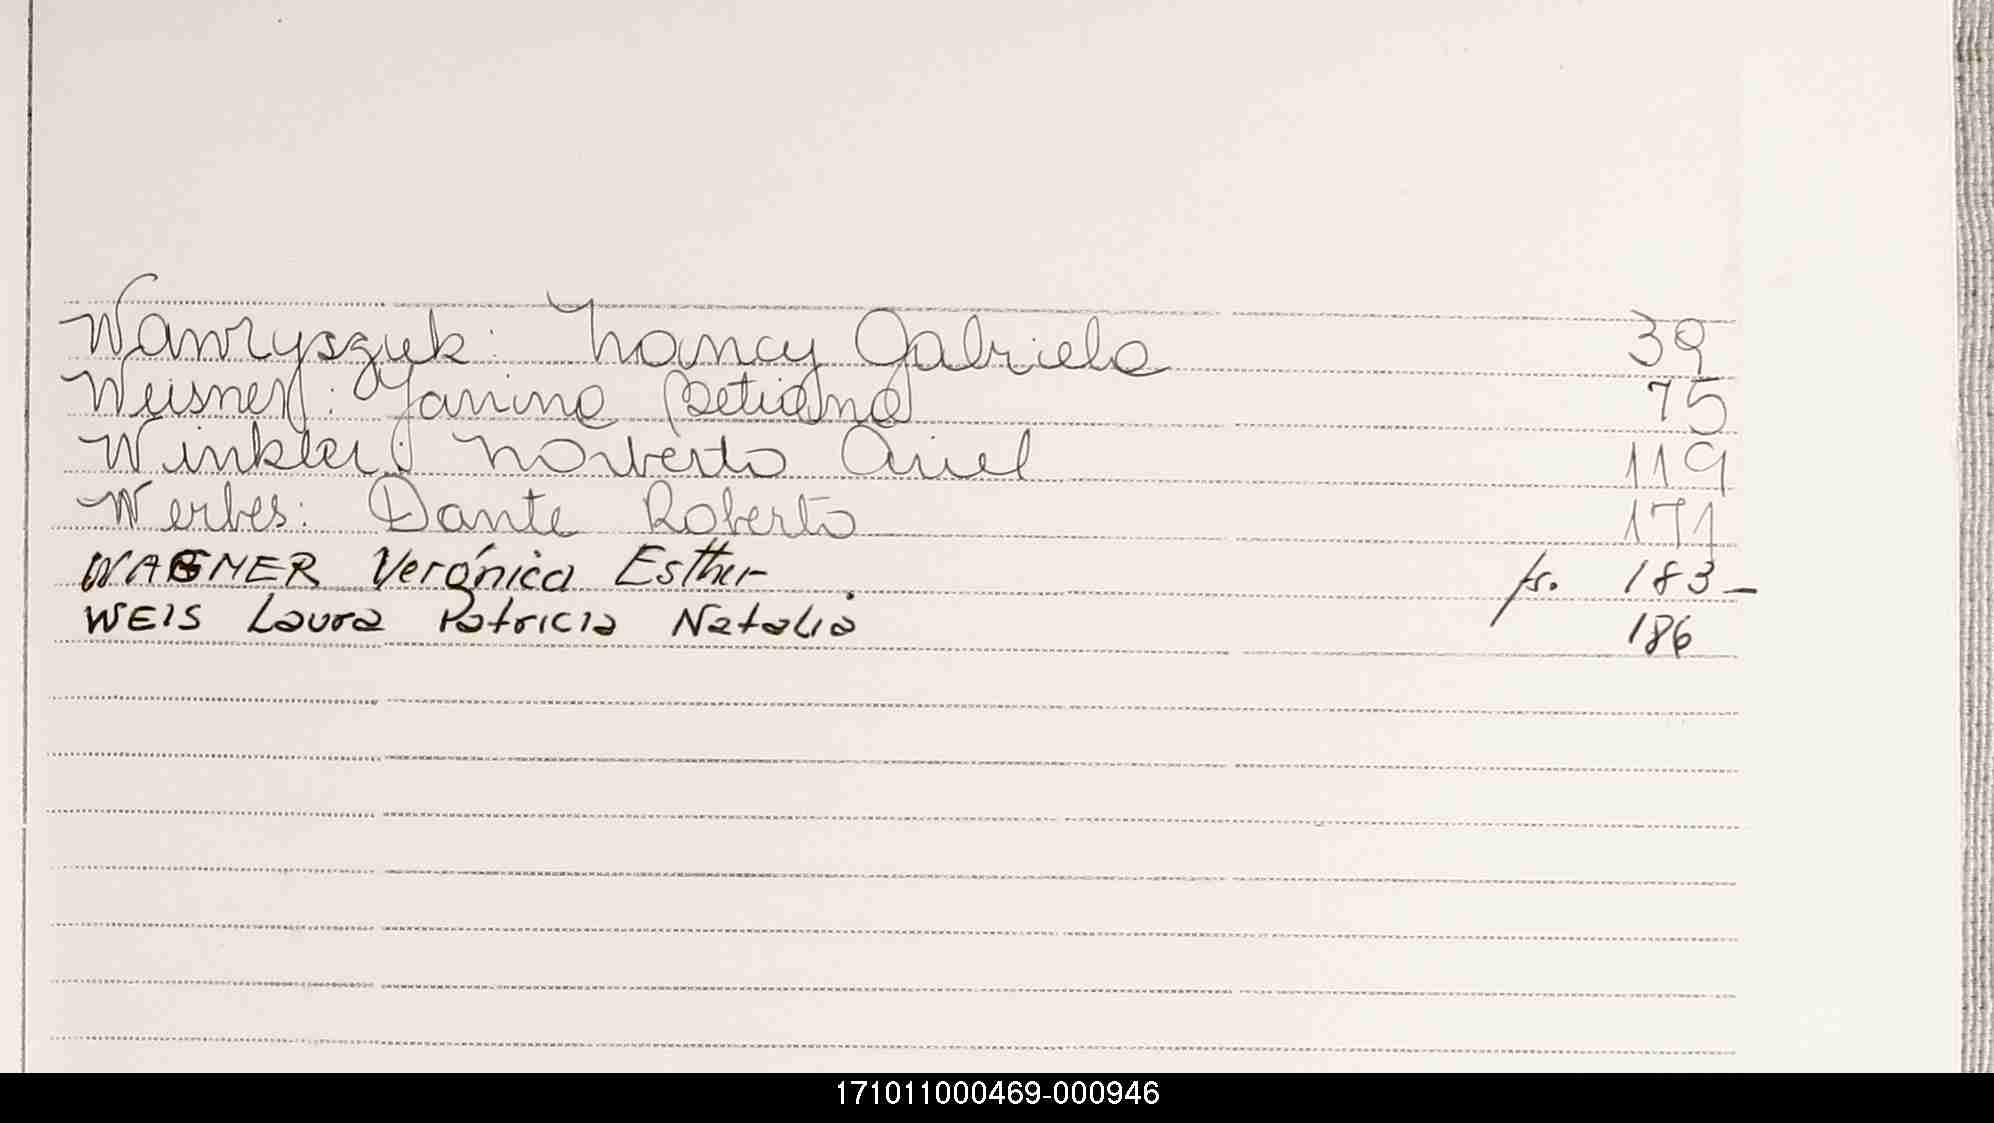 Wawryszuk: Nancy Gabriela 39
Weisner: Yanina Betiana 75
Winkler: Norberto Ariel 119
Werbes: Dante Roberto 171
WAGNER Verónica Esther. fs. 183_
WEIS Laura Patricia Natalia 186
171011000469-000946